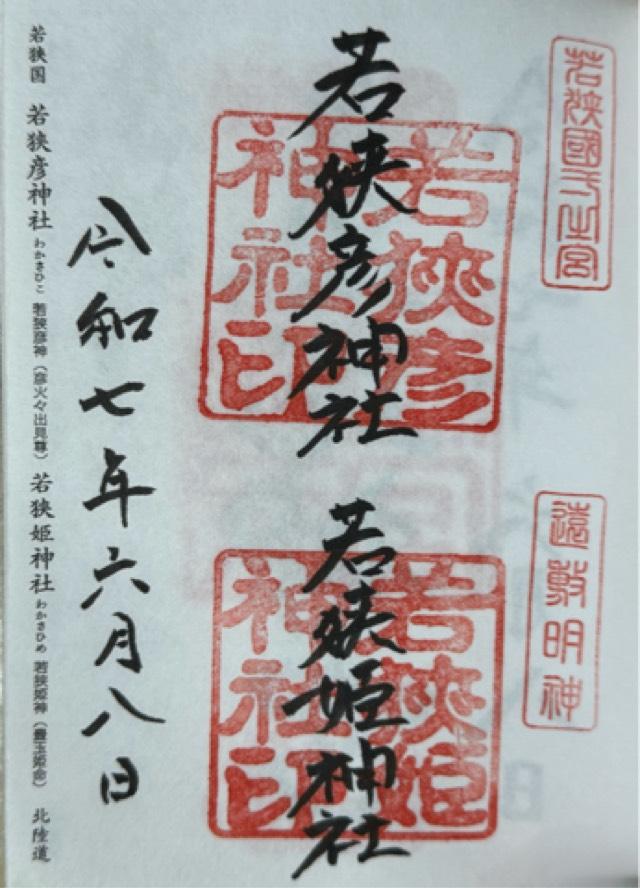 若狹國一之宮
遠敷明神
若狭彦神社
若狹彦神社印
若狭姫神社
若狹姫神社印
令和七年六月八日
若狭国 若狭彦神社 わかさひこ 若狭彦神（彦火々出見尊） 若狭姫神社 わかさひめ 若狭姫神（豊玉姫命） 北陸道